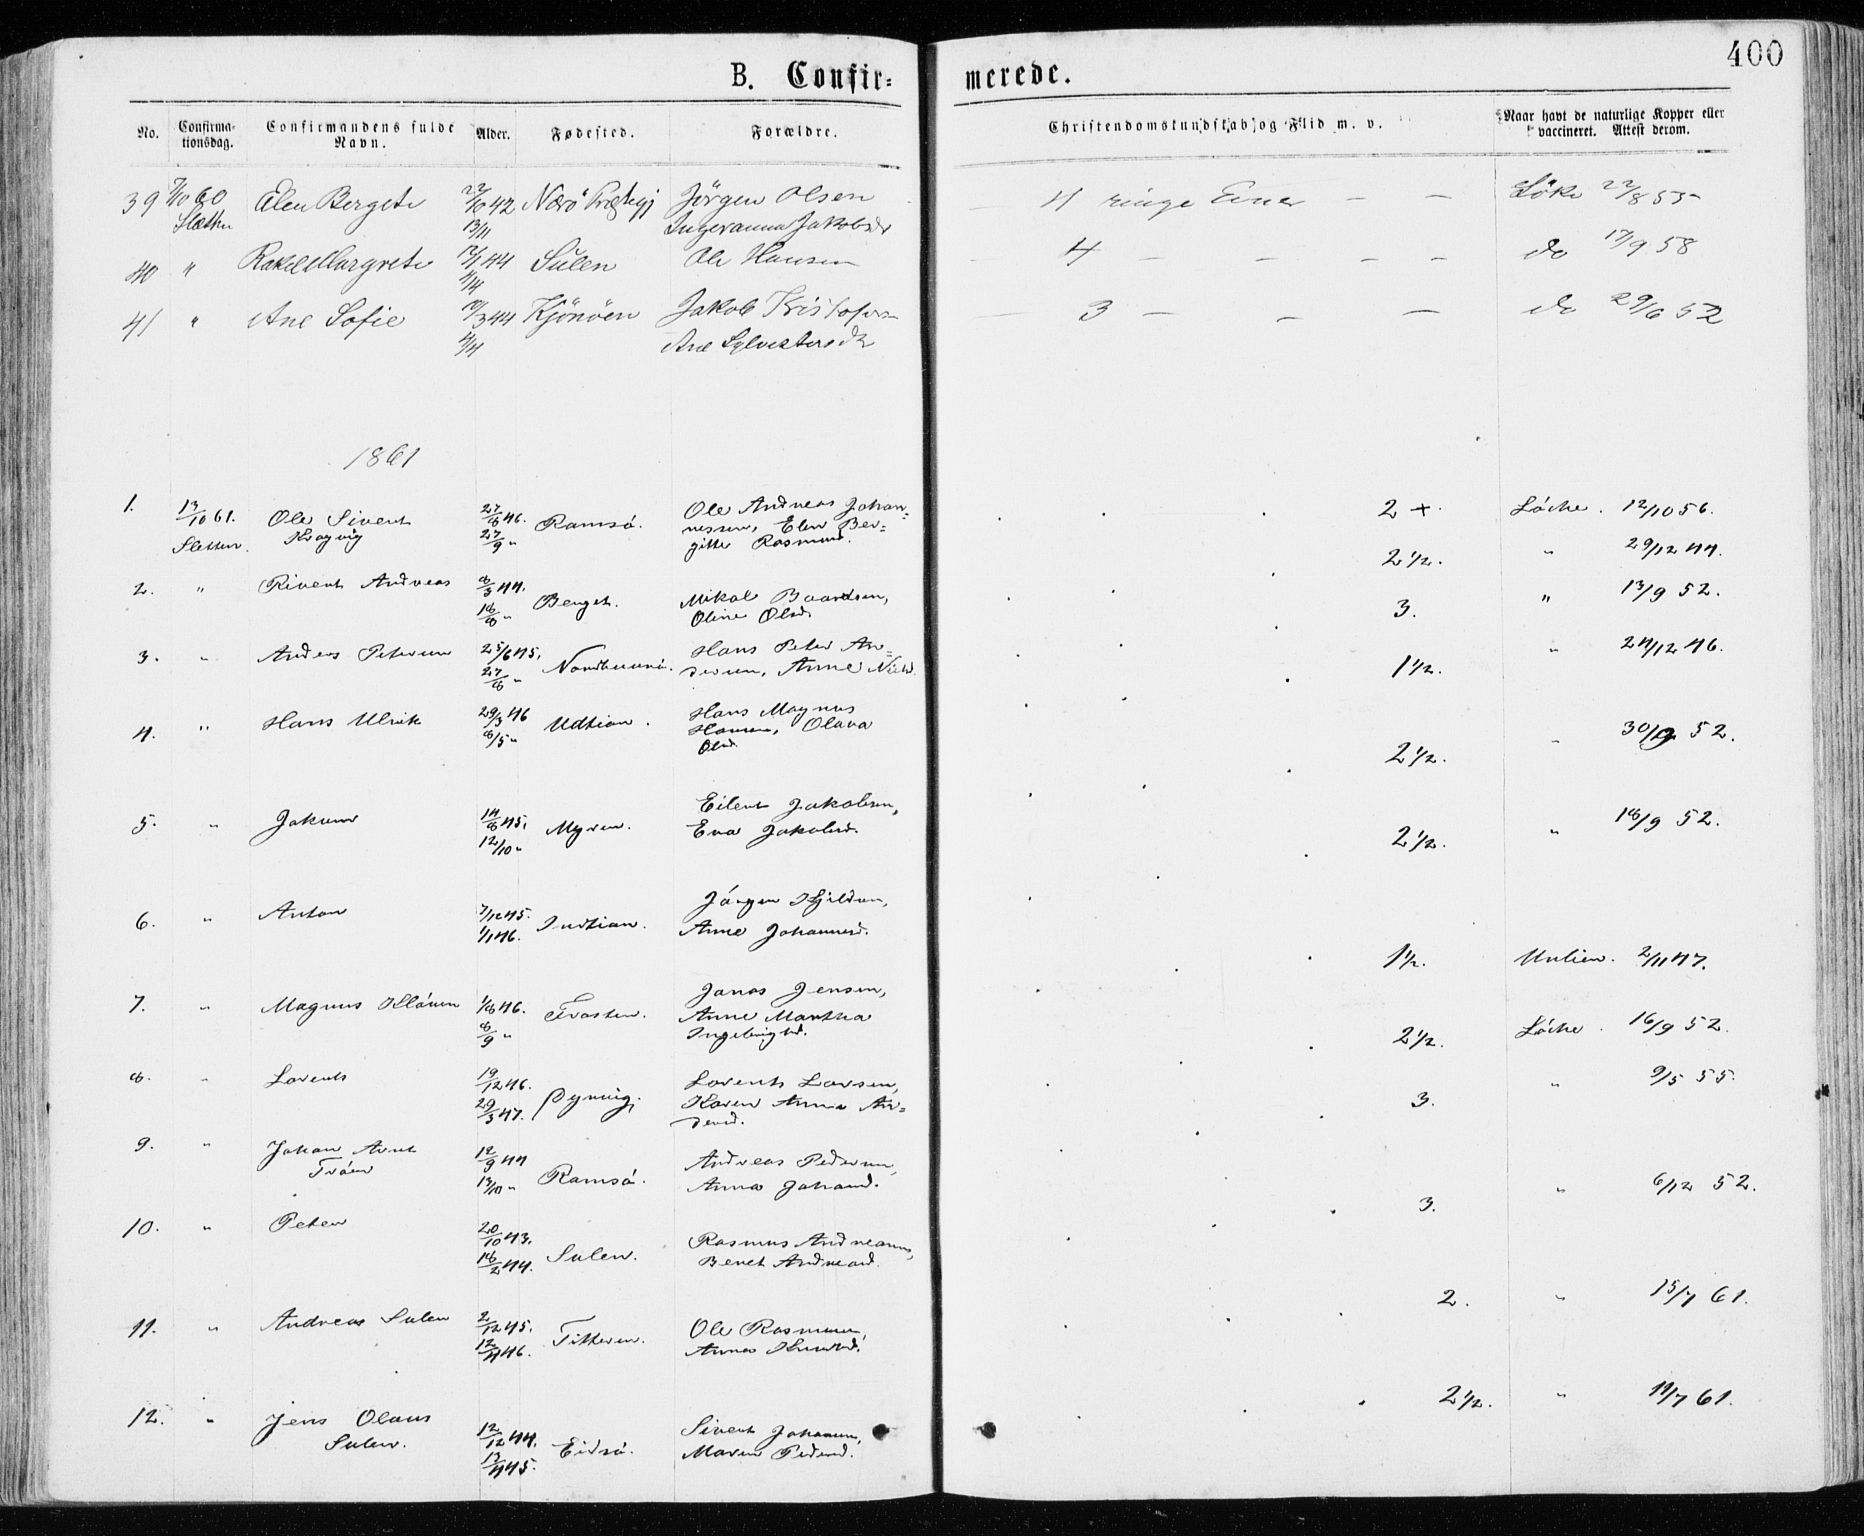 400
B. Confir= merede.
No. Confirma-tionsdag. Confirmandens fulde Navn. Alder. Fødested. Forældre. Christendomskundskab og Flid m. v. Naar havt de naturlige Kopper eller vaccineret. Attest derom.
39 7/10 60 Elen Bergete 22/10 42 Nærö Jörgen Olsen 4 ringe Evner — — Löke 22/8 55
Sletten 13/11 Ingeranna Jakobsdr
40 " Rakel Margrete 12/1 44 Sulen Ole Hansen 4 — — — — do 17/9 58
41 " Ane Sofie /3 44 Kjönöen Jakob Kristofers 3 — — — do 29/6 52
Ane Sylvestersdr
1861
1. 13/10 61. Ole Sivert 27/8 46. Ramsö. Ole Andreas Johan= 2 +. Löche. 12/10 56.
Sletten. Kragvig 27/9 " nessen, Elen Ber=
gitte Rasmusd.
2. " Sivert Andreas 8/3 44. Berget. Mikal Baardsen, 2 1/2. " 29/12 44.
18/8 " Oline Olsd.
3. " Anders Petersen 25/6 45. Hans Peter An= 3. " 13/9 52.
27/8 " dersen, Anne Nielsd.
4. " Hans Ulrik 29/3 46 Udtian. Hans Magnus 1 1/2. " 24/12 46.
8/5 " Hansen, Olava
Olsd.
5. " Jakum 14/8 45. Myren. Eilert Jakobsen, 2 1/2. " 30/9 52.
12/10 " Eva Jakobsd.
6. " Anton 7/12 45. Indtian. Jörgen Kjeldsen, 2 1/2. " 18/9 52.
1/1 46. Anne Johannesd.
7. " Magnus 1/8 46. Frosten. Jonas Jensen, 1 1/2. 2/11 47.
8/9 " Anne Martha
Ingebrigtsd.
8. " Lorents 19/12 46. Pynvig. Lorents Larsen, 2 1/2. Löche. 16/9 52.
29/3 47. Karen Anna An=
dersd.
9. " Johan Arnt 12/9 44 Ramsö. Andreas Pedersen, 3. " 9/5 55.
Tröen 13/10 " Anna Johansd.
10. " Peter 20/10 43. Sulen. Rasmus Andreassen, 3. " 6/12 52.
18/2 44. Beret Andreasd.
11. " Andreas Sulen 2/12 45. Titteren. Ole Rasmussen, 2. " 15/7 61.
12/4 46. Anna Knudsd.
12. " Jens Olaus 12/12 44. Eidsö. Sivert Johansen, 2 1/2. " 11/7 61.
Sulen. 13/4 45. Maren Pedersd.